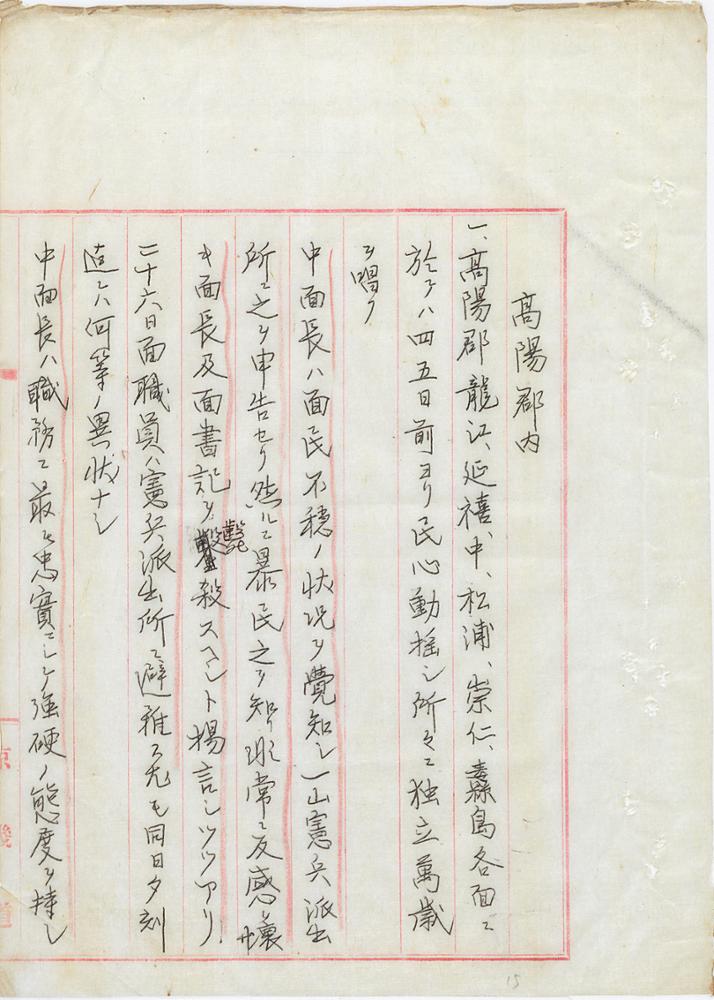 高陽郡内
一、高陽郡龍江、延禧、中、松浦、崇仁、纛島各面ニ
於テハ四五日前ヨリ民心動揺シ所々ニ独立萬歳
ヲ唱フ
中面長ハ面民不穏ノ状況ヲ覺知シ一山憲兵派出
所ニ之ヲ申告セリ然ルニ暴民之ヲ知リ非常ニ反感ヲ懐
キ面長及面書記ヲ毆殺スヘシト揚言シツツアリ
二十六日面職員ハ憲兵派出所ニ避難ス尤モ同日夕刻
迠ニハ何等ノ異状ナシ
中面長ハ職務ニ最モ忠實ニシテ強硬ノ態度ヲ持シ
京畿道
15